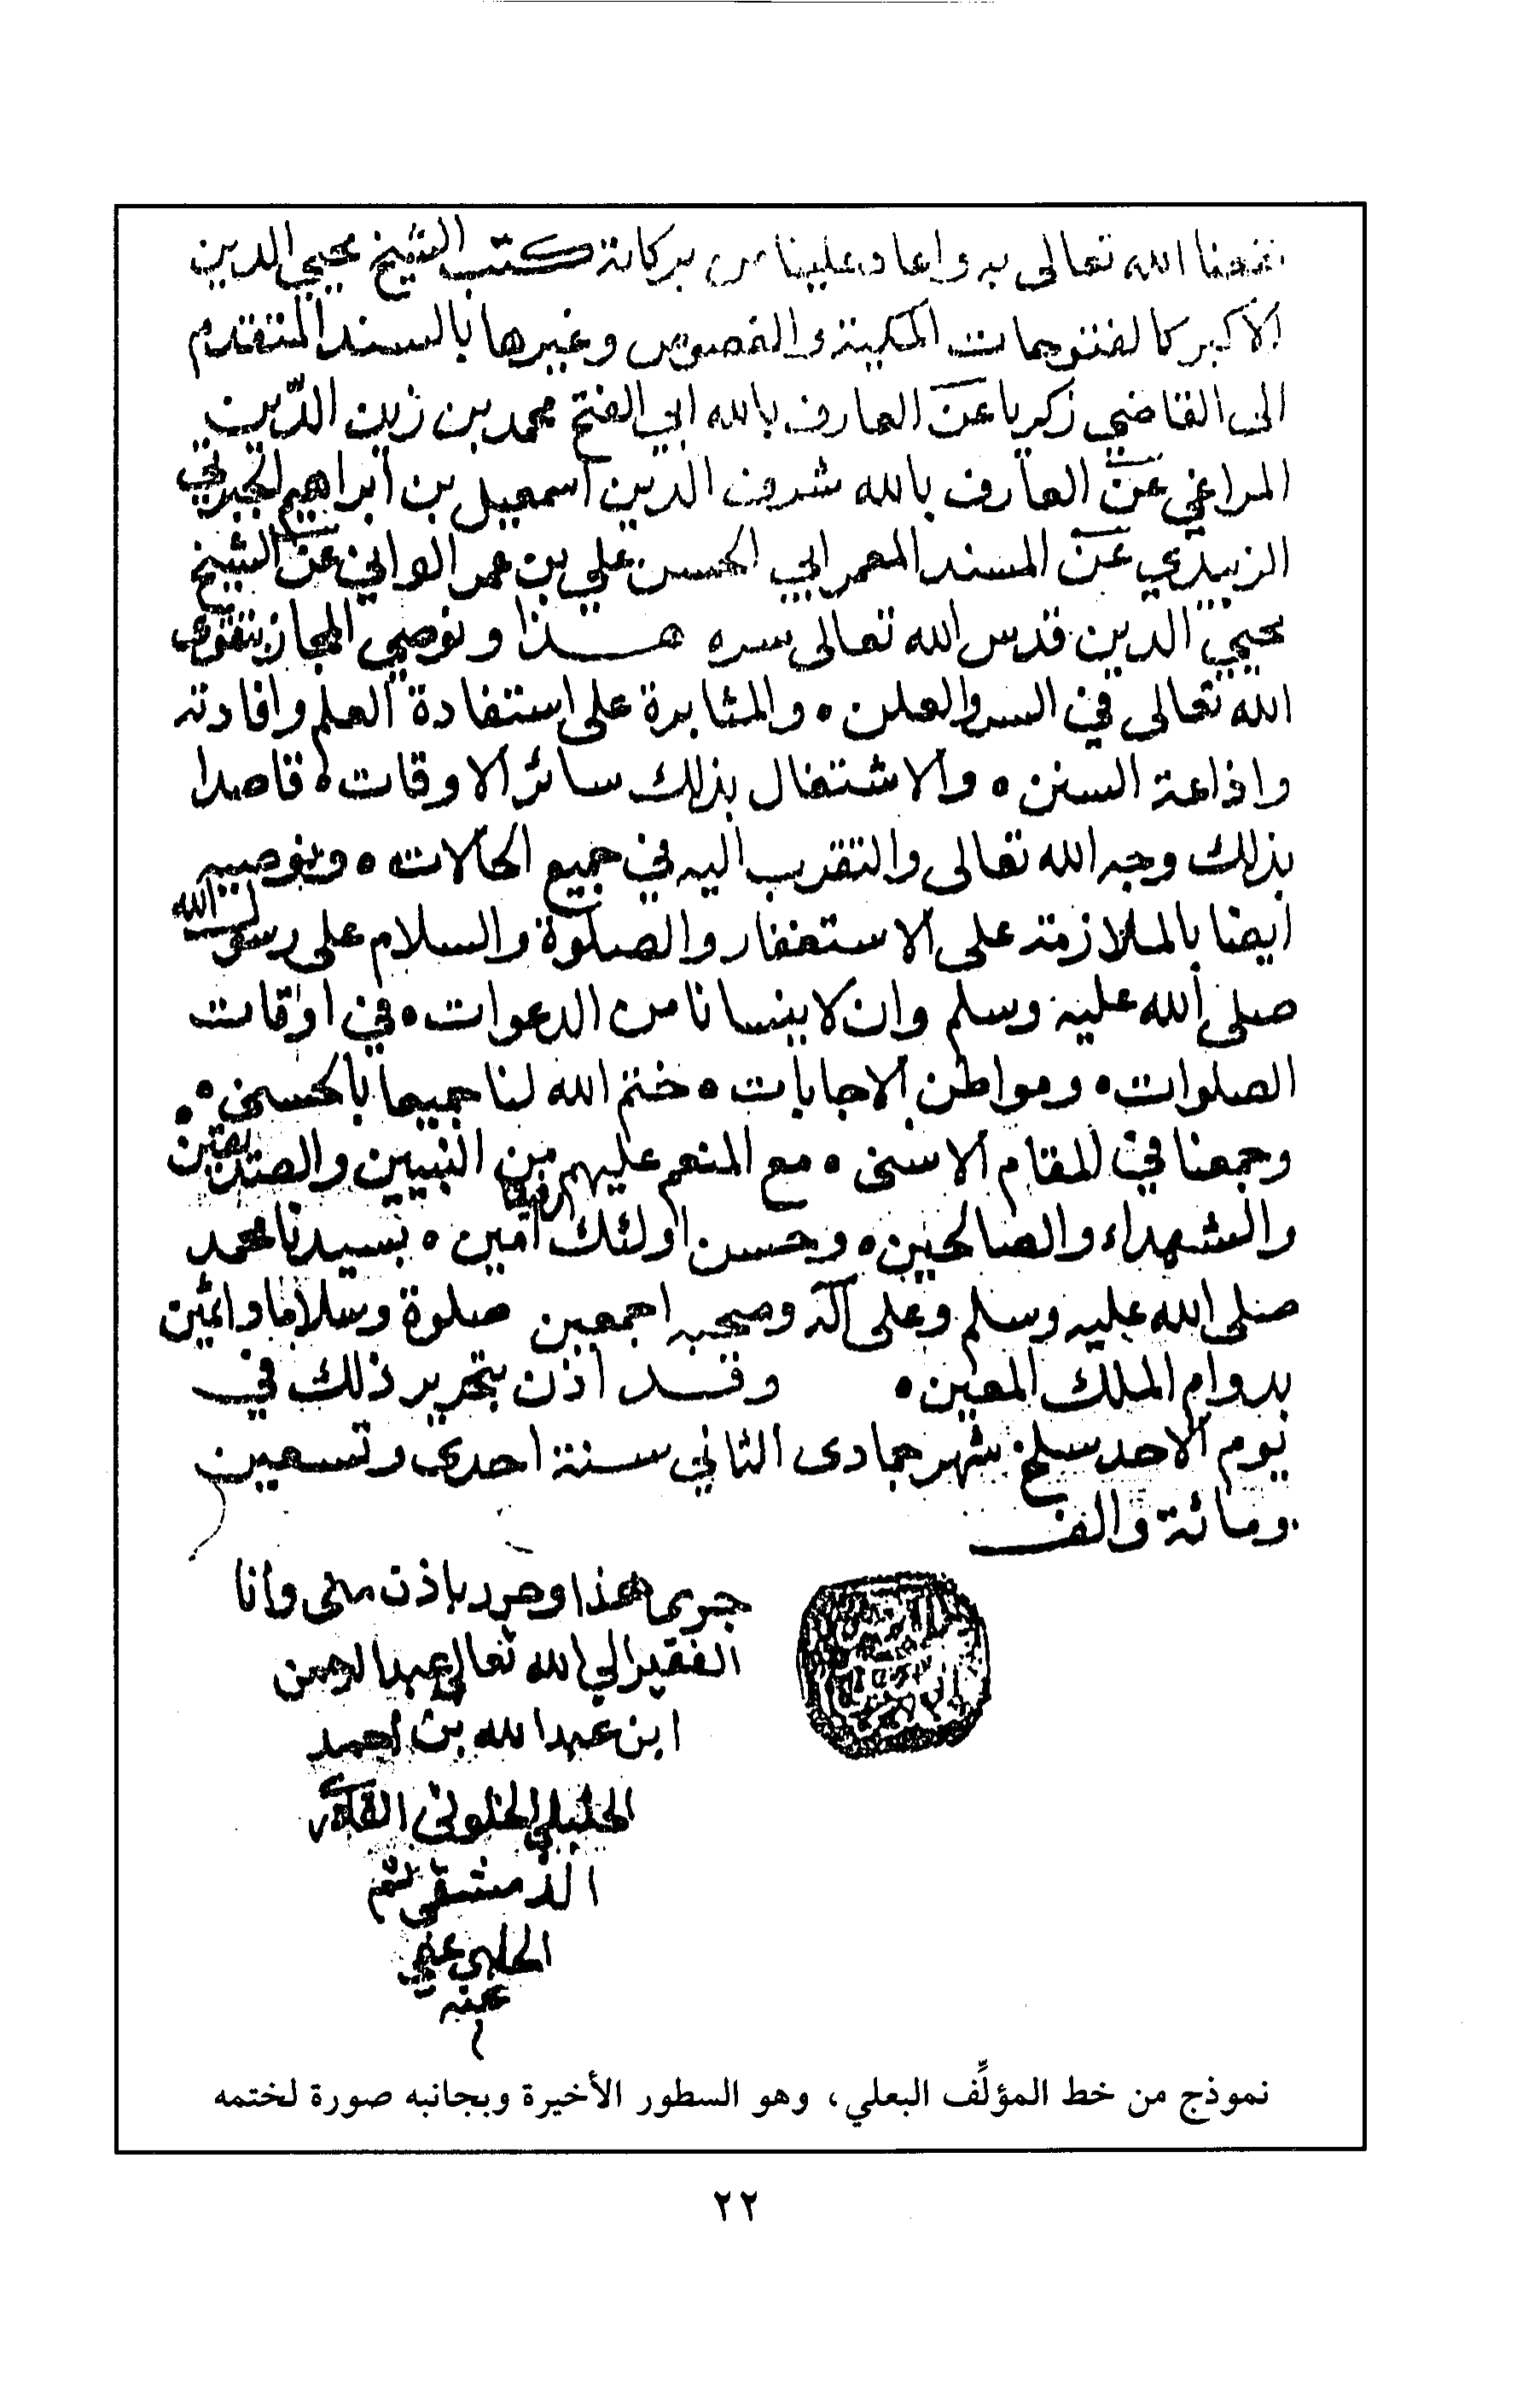 نفعنا الله تعالى به واعاد علينا من بركاته كتب الشيخ محيي الدين
الاكبر كالفتوحات المكية والفصوص وغيرها بالسند المتقدم
الى القاضي زكريا عن العارف بالله ابي الفتح محمد بن زين الدّين
المراغي عن العارف بالله شرف الدين اسمعيل بن ابراهيم الجبرتي
الزبيدي عن المسند المعمر ابي الحسن علي بن عمر الواني عن الشيخ
محيي الدين قدس الله تعالى سره هذا ونوصي المجاز بتقوى
الله تعالى في السر والعلن ه والمثابرة على استفادة العلم وافادته
واذاعة السنن ه والاشتغال بذلك سائر الاوقات ه قاصدا
بذلك وجه الله تعالى والتقرب اليه في جميع الحالات ه ونوصيه
ايضا بالملازمة على الاستغفار والصلوة والسلام على رسول الله
صلى الله عليه وسلم وان لا ينسانا من الدعوات ه في اوقات
الصلوات ه ومواطن الاجابات ه ختم الله لنا جميعا بالحسنى ه ه
وجمعنا في المقام الاسنى ه مع المنعم عليهم من النبيين والصديقين
والشهداء والصالحين ه وحسن اولئك رفيقا امين ه بسيدنا محمد
صلى الله عليه وسلم وعلى آله وصحبه اجمعين صلوة وسلاما دائمين
بدوام الملك المعين ه وقد اذن بتحرير ذلك في
يوم الاحد سلخ شهر جمادى الثاني سنة احدى وتسعين
ومائة والف
جرى هذا وحرر باذن مني وانا
الفقير الى الله تعالى عبد الرحمن
ابن عبد الله بن احمد
الحنبلي الخلوتي القادري
الدمشقي ثم
الحلبي عفي
عنه
نموذج من خط المؤلِّف البعلي، وهو السطور الأخيرة وبجانبه صورة لختمه
٢٢